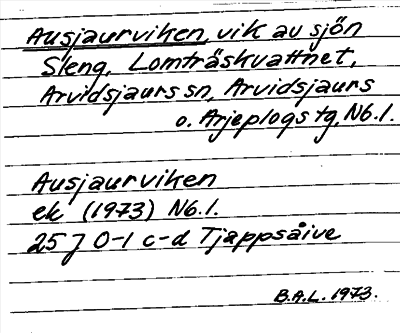 Ausjaurviken, vik av sjön
Sleng, Lomträskvattnet,
Arvidsjaurs sn, Arvidsjaurs
o. Arjeplogs tg, Nb.l.
Ausjaurviken
ek (1973) Nb.l.
25 J 0-1 c-d Tjappsåive
B.A.L. 1973.